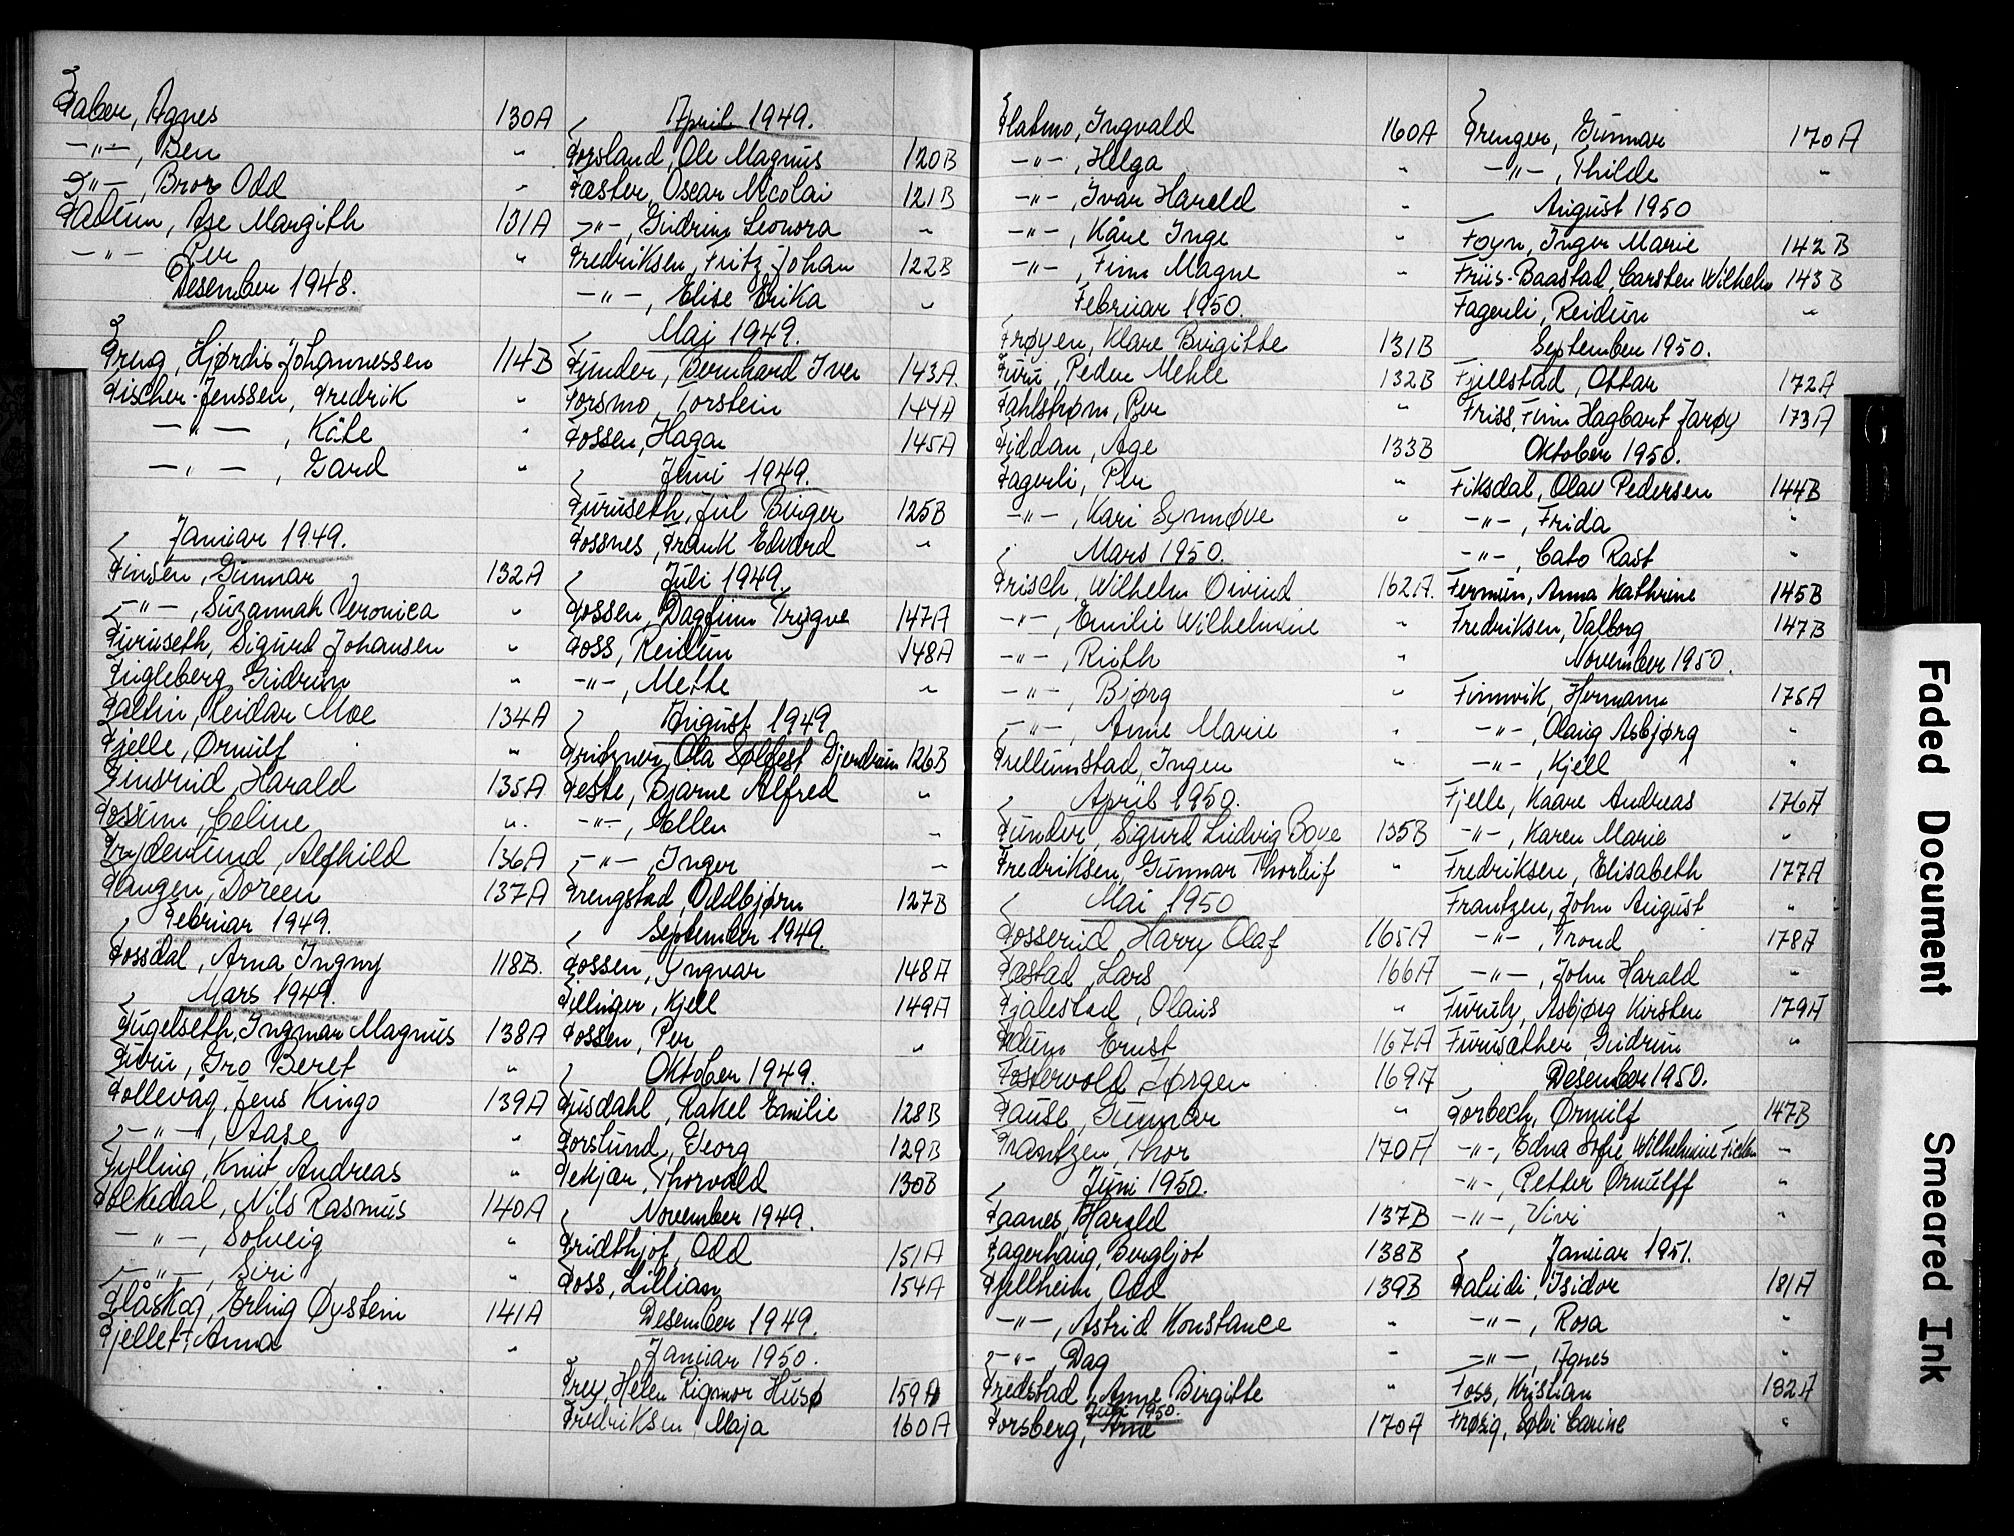 Faber, Agnes 130A
-"-, Ben "
-"-, Bror Odd "
Fadum, Åse Margith 131A
-"- Per "
Desember 1948.
Freng, Hjørdis Johannessen 114B
Fischer-Jenssen, Fredrik "
-"-, Käte "
-"-, Gard "
Januar 1949.
Finsen, Gunnar 132A
-"-, Suzannah Veronica "
Furuseth, Sigurd Johansen "
Fugleberg, Gudrun "
Faltin, Reidar Moe 134A
Fjelle, Ørnulf "
Finsrud, Harald 135A
Fossum, Celine "
Frydenlund, Alfhild 136A
Fangen, Doreen 137A
Februar 1949.
Fossdal, Arna Ingny 118B.
Mars 1949.
Fugelseth, Ingmar Magnus 138A
Furu, Gro Beret "
Follevåg, Jens Kingo 139A
-"-, Aase "
Fylling, Knut Andreas "
Folkedal, Nils Rasmus 140A
-"-, Solveig "
-"-, Siri "
Flåskog, Erling Øystein 141A
Fjellet, Anna "
April 1949.
Forsland, Ole Magnus 120B
Fæster, Oscar Nicolai 121B
-"-, Gudrun Leonora "
Fredriksen, Fritz Johan 122B
-"-, Elise Erika "
Mai 1949.
Funder, Bernhard Iver 143A.
Forsmo, Torstein 144A
Fossen, Hagar 145A
Juni 1949.
Furuseth, Jul Birger 125B
Fossnes, Frank Edvard "
Juli 1949.
Fossen, Dagfinn Trygve 147A
Foss, Reidun 148A
-"-, Mette "
August 1949
Fritzner, Ola Sølfest Gjerdrum 126B
Feste, Bjarne Alfred "
-"-, Ellen "
-"-, Inger "
Frengstad, Oddbjørn 127B
September 1949.
Fossen, Yngvar 148A
Fillinger, Kjell 149A
Fossen, Per "
Oktober 1949.
Fusdahl, Rakel Emilie 128B
Forslund, Georg 129B
Fekjær, Thorvald 130B
November 1949.
Fridthjof, Odd 151A
Foss, Lillian 154A
Desember 1949.
Januar 1950.
Frey, Helen Rigmor Husø 159A
Fredriksen, Maja 160A
Flatmo, Ingvald 160A
-"-, Helga "
-"-, Ivar Harald "
-"-, Kåre Inge "
-"-, Finn Magne "
Februar 1950.
Frøyen, Klare Birgitte 131B
Furu, Peder Mehle 132B
Fahlstrøm, Per "
Fiddan, Åge 133B
Fagerli, Per "
-"-, Kari Synnøve "
Mars 1950.
Frisch, Wilhelm Oivind 162A.
-"-, Emilie Wilhelmine "
-"-, Ruth "
-"-, Bjørg "
-"-, Anne Marie "
Frellumstad, Inger "
April 1950.
Funder, Sigurd Ludvig Bove 135B
Fredriksen, Gunnar Thorleif "
Mai 1950
Fosserud, Harry Olaf 165A
Fastad, Lars 166A
Fjalestad, Olaus "
Fadum Ernst 167A
Fostervold Jørgen 169A
Fause, Gunnar "
Frantzen, Thor 170A
Juni 1950.
Faanes, Harald 137B
Fagerhaug, Bergljot 138B
Fjellheim, Odd 139B
-"-, Astrid Konstance "
-"-, Dag "
Fredstad, Anne Birgitte "
Juli 1950.
Forsberg, Arne 170A
Frenger, Gunnar 170A
-"-, Thilde "
August 1950
Foyn, Inger Marie 142B
Friis-Baastad, Carsten Wilhelm 143B
Fagerli, Reidun "
September 1950.
Fjellstad, Ottar 172A
Friss, Finn Hagbart Jarøy 173A
Oktober 1950.
Fiksdal, Olav Pedersen 144B
-"-, Frida "
-"-, Cato Rast "
Fermun, Anna Kathrine 145B
Fredriksen, Valborg 147B
November 1950.
Finnvik, Hermann 175A
-"-, Olaug Asbjørg "
-"-, Kjell "
Fjelle, Kaare Andreas 176A
-"-, Karen Marie "
Fredriksen, Elisabeth 177A
Frantzen, John August "
-"-, Trond 178A
-"-, John Harald "
Furuly, Asbjørg Kirsten 179A
Furusæther, Gudrun "
Desember 1950.
Forbech, Ørnulf 147B
-"-, Edna Sofie Wilhelmine "
-"-, Petter Ørnulff "
-"-, Vivi "
Januar 1951.
Faludi, Isidor 181A
-"-, Rosa "
-"-, Agnes "
Foss, Kristian 182A
Frøsig, Sølvi Carine "
Faded Document
Smeared Ink